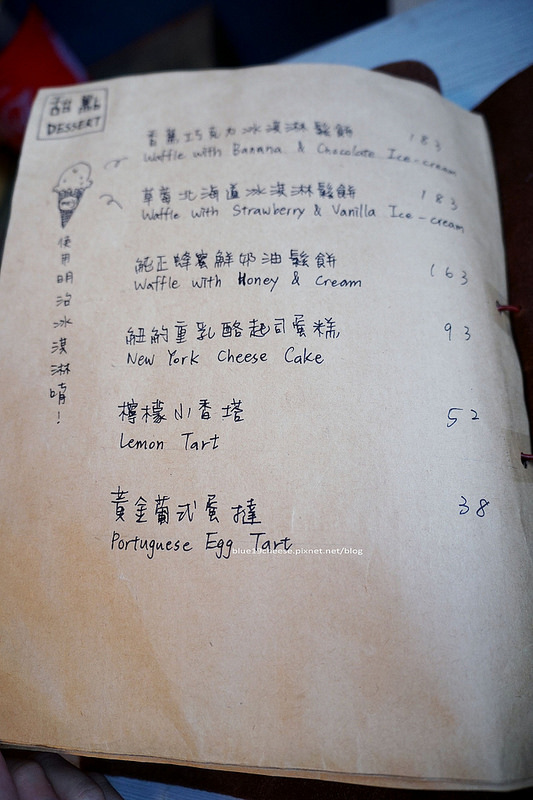 甜點
DESSERT
香蕉巧克力冰淇淋鬆餅 183
Waffle with Banana & Chocolate Ice-cream
草莓北海道冰淇淋鬆餅 183
Waffle with Strawberry & Vanilla Ice-cream
純正蜂蜜鮮奶油鬆餅 163
Waffle with Honey & Cream
紐約重乳酪起司蛋糕 93
New York Cheese Cake
檸檬小香塔 52
Lemon Tart
黃金葡式蛋撻 38
Portuguese Egg Tart
使用明治冰淇淋唷!
blue19cheese.pixnet.net/blog